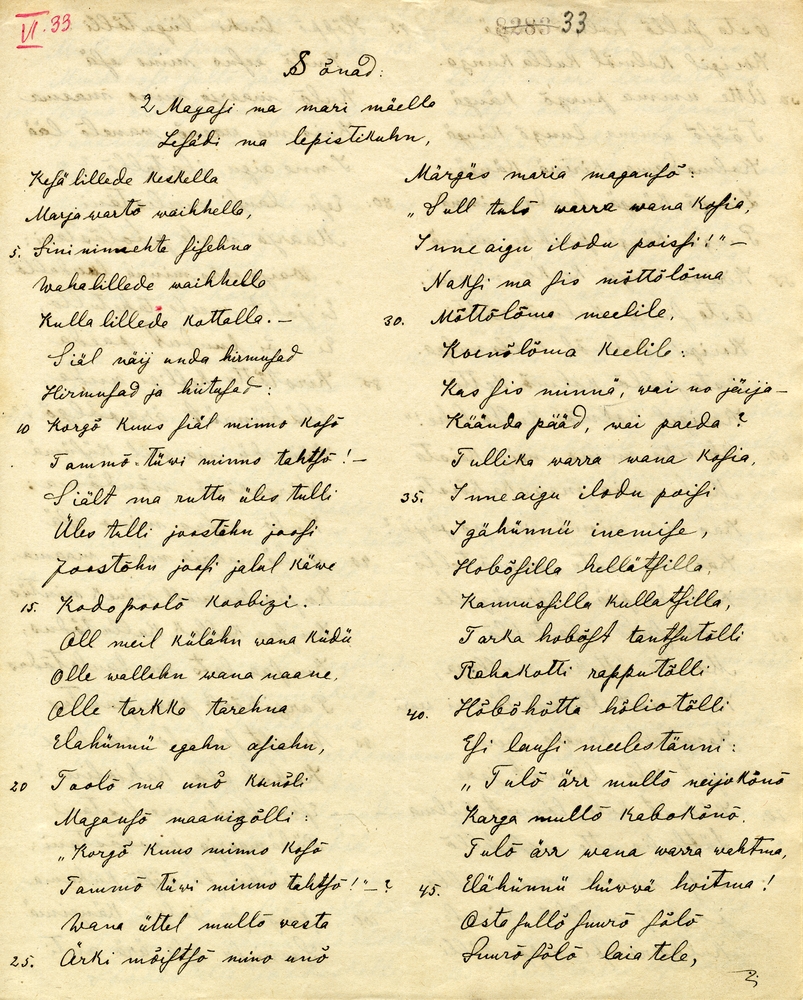 VI. 33
33
Sõnad:
2 Magasi ma mari mäella
Lesädi ma lepistikuhn,
Kesä lillede keskella
Marja warto waihhella,
5. Sini nimmehte sisehna
Waha lillede waihhella
Kulla lillede kottalla. —
Siäl näij unda hirmusad
Hirmusad ja hiitusad:
10 Korgõ kuus siäl minno kosõ
Tammõ-tüwi minno tahtsõ! —
Siält ma ruttu üles tulli
Üles tulli joostehn joosi
Joostehn joosi jalul käwe
15. Kodo poolõ koobizi.
Oll meil külähn wana küdü
Olle wallahn wana naane,
Olle tarkka tarehna
Elahünnü egahn asiahn,
20 Toolõ ma unõ kunõli
Magausõ maanizõlli:
„Korgõ kuus minno kosõ
Tammõ tüwi minno tahtsõ!" — ?
Wana üttel mullõ wasta
25. Ärki mõistsõ mino unõ
Märgäs maria magausõ:
„Sull tulõ warra wana kosia,
Inne aigu ilodu poissi!" —
Naksi ma sis mõttõlõma
30. Mõttõlõma meelile,
Koenõlõma keelile:
Kas sis minnä, wai no jäija —
Käändä pääd, wai paeda?
Tullika warra wana kosia,
35. Inne aigu ilodu poisi
Igähünnü inemise,
Hobõsilla hellätsilla,
Kannussilla kullatsilla,
Tarka hobõst tantsutõlli
Rahakotti rapputõlli
40. Hõbõhõtta hõliotõlli
Esi lausi meelestänni:
„Tulõ ärr mullõ neijokõnõ
Karga mullõ kabokõnõ.
Tulõ ärr wana warra wahtma,
45. Elähünnü hüwwä hoitma!
Osta sullõ suurõ sõlõ
Suurõ sõlõ laia tele,